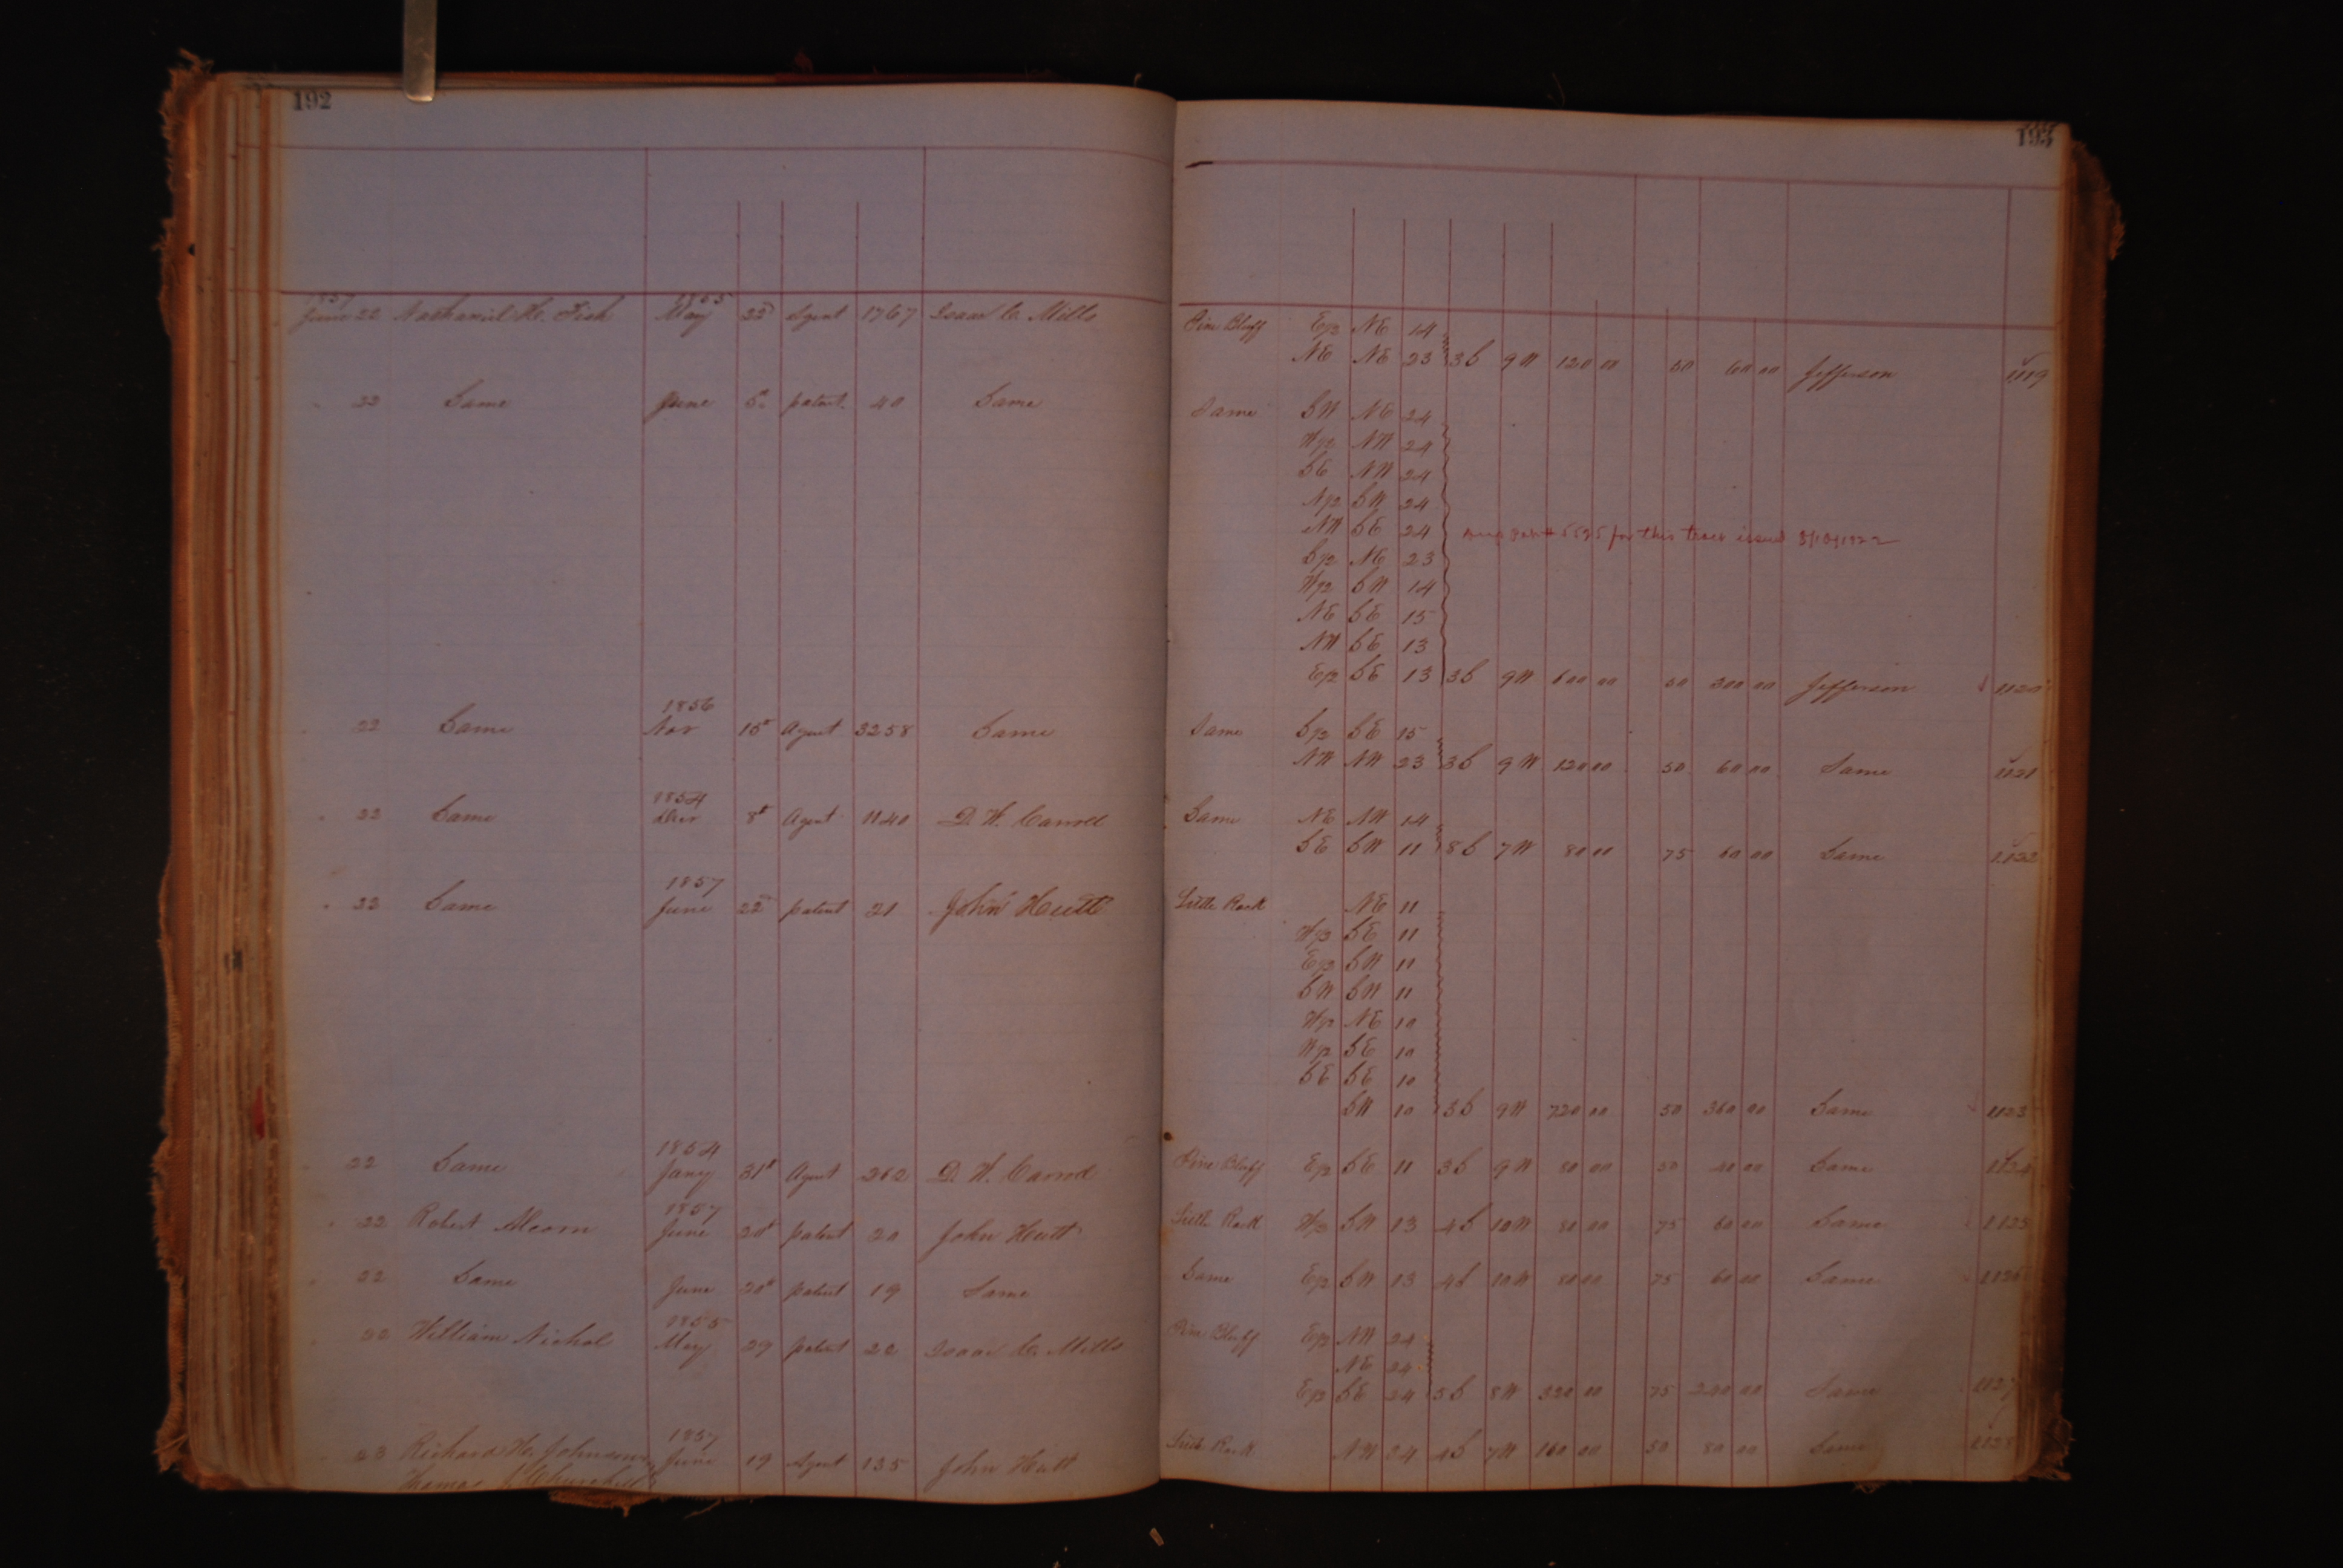 192
193
1857 1855
June 22 Nathaniel H. Fish May 22d Agent 1767 Isaac C. Mills Pine Bluff E/2 NE 14
NE NE 23 3S 9W 120 00 50 60 00 Jefferson 1119
" 22 Same June 5th patent 40 Same Same SW NE 24
W/2 NW 24
SE NW 24
N/2 SW 24
NW SE 24 for this tract issued
S/2 NE 23
W/2 SW 14
NE SE 15
NW SE 13
E/2 SE 13 3S 9W 600 00 50 300 00 Jefferson 1120
1856
" 22 Same Nov 15t Agent 3258 Same Same S/2 SE 15
NW NW 23 3S 9W 120 00 50 60 00 Same 1121
1854
" 22 Same Decr 8t Agent 1140 D. W. Carroll Same NE NW 14
SE SW 11 8S 7W 80 00 75 60 00 Same 1122
1857
" 22 Same June 22d patent 21 John Hutt Little Rock NE 11
W/2 SE 11
E/2 SW 11
SW SW 11
W/2 NE 10
W/2 SE 10
SE SE 10
SW 10 3S 9W 720 00 50 360 00 Same 1123
1854
" 22 Same Jany 31t Agent 262 D. W. Carroll Pine Bluff E/2 SE 11 3S 9W 80 00 50 40 00 Same 1124
1857
" 22 Robert Alcorn June 20t patent 20 John Hutt Little Rock W/2 SW 13 4S 10W 80 00 75 60 00 Same 1125
" 22 Same June 20t patent 19 Same Same E/2 SW 13 4S 10W 80 00 75 60 00 Same 1126
1855
" 22 William Nichol May 29 patent 22 Isaac C. Mills Pine Bluff E/2 NW 24
NE 24
E/2 SE 24 5S 8W 320 00 75 240 00 Same 1127
1857
" 23 Richard H. Johnson June 19 Agent 135 John Hutt Little Rock NW 24 4S 7W 160 00 50 80 00 Same 1128
Thomas J. Churchill